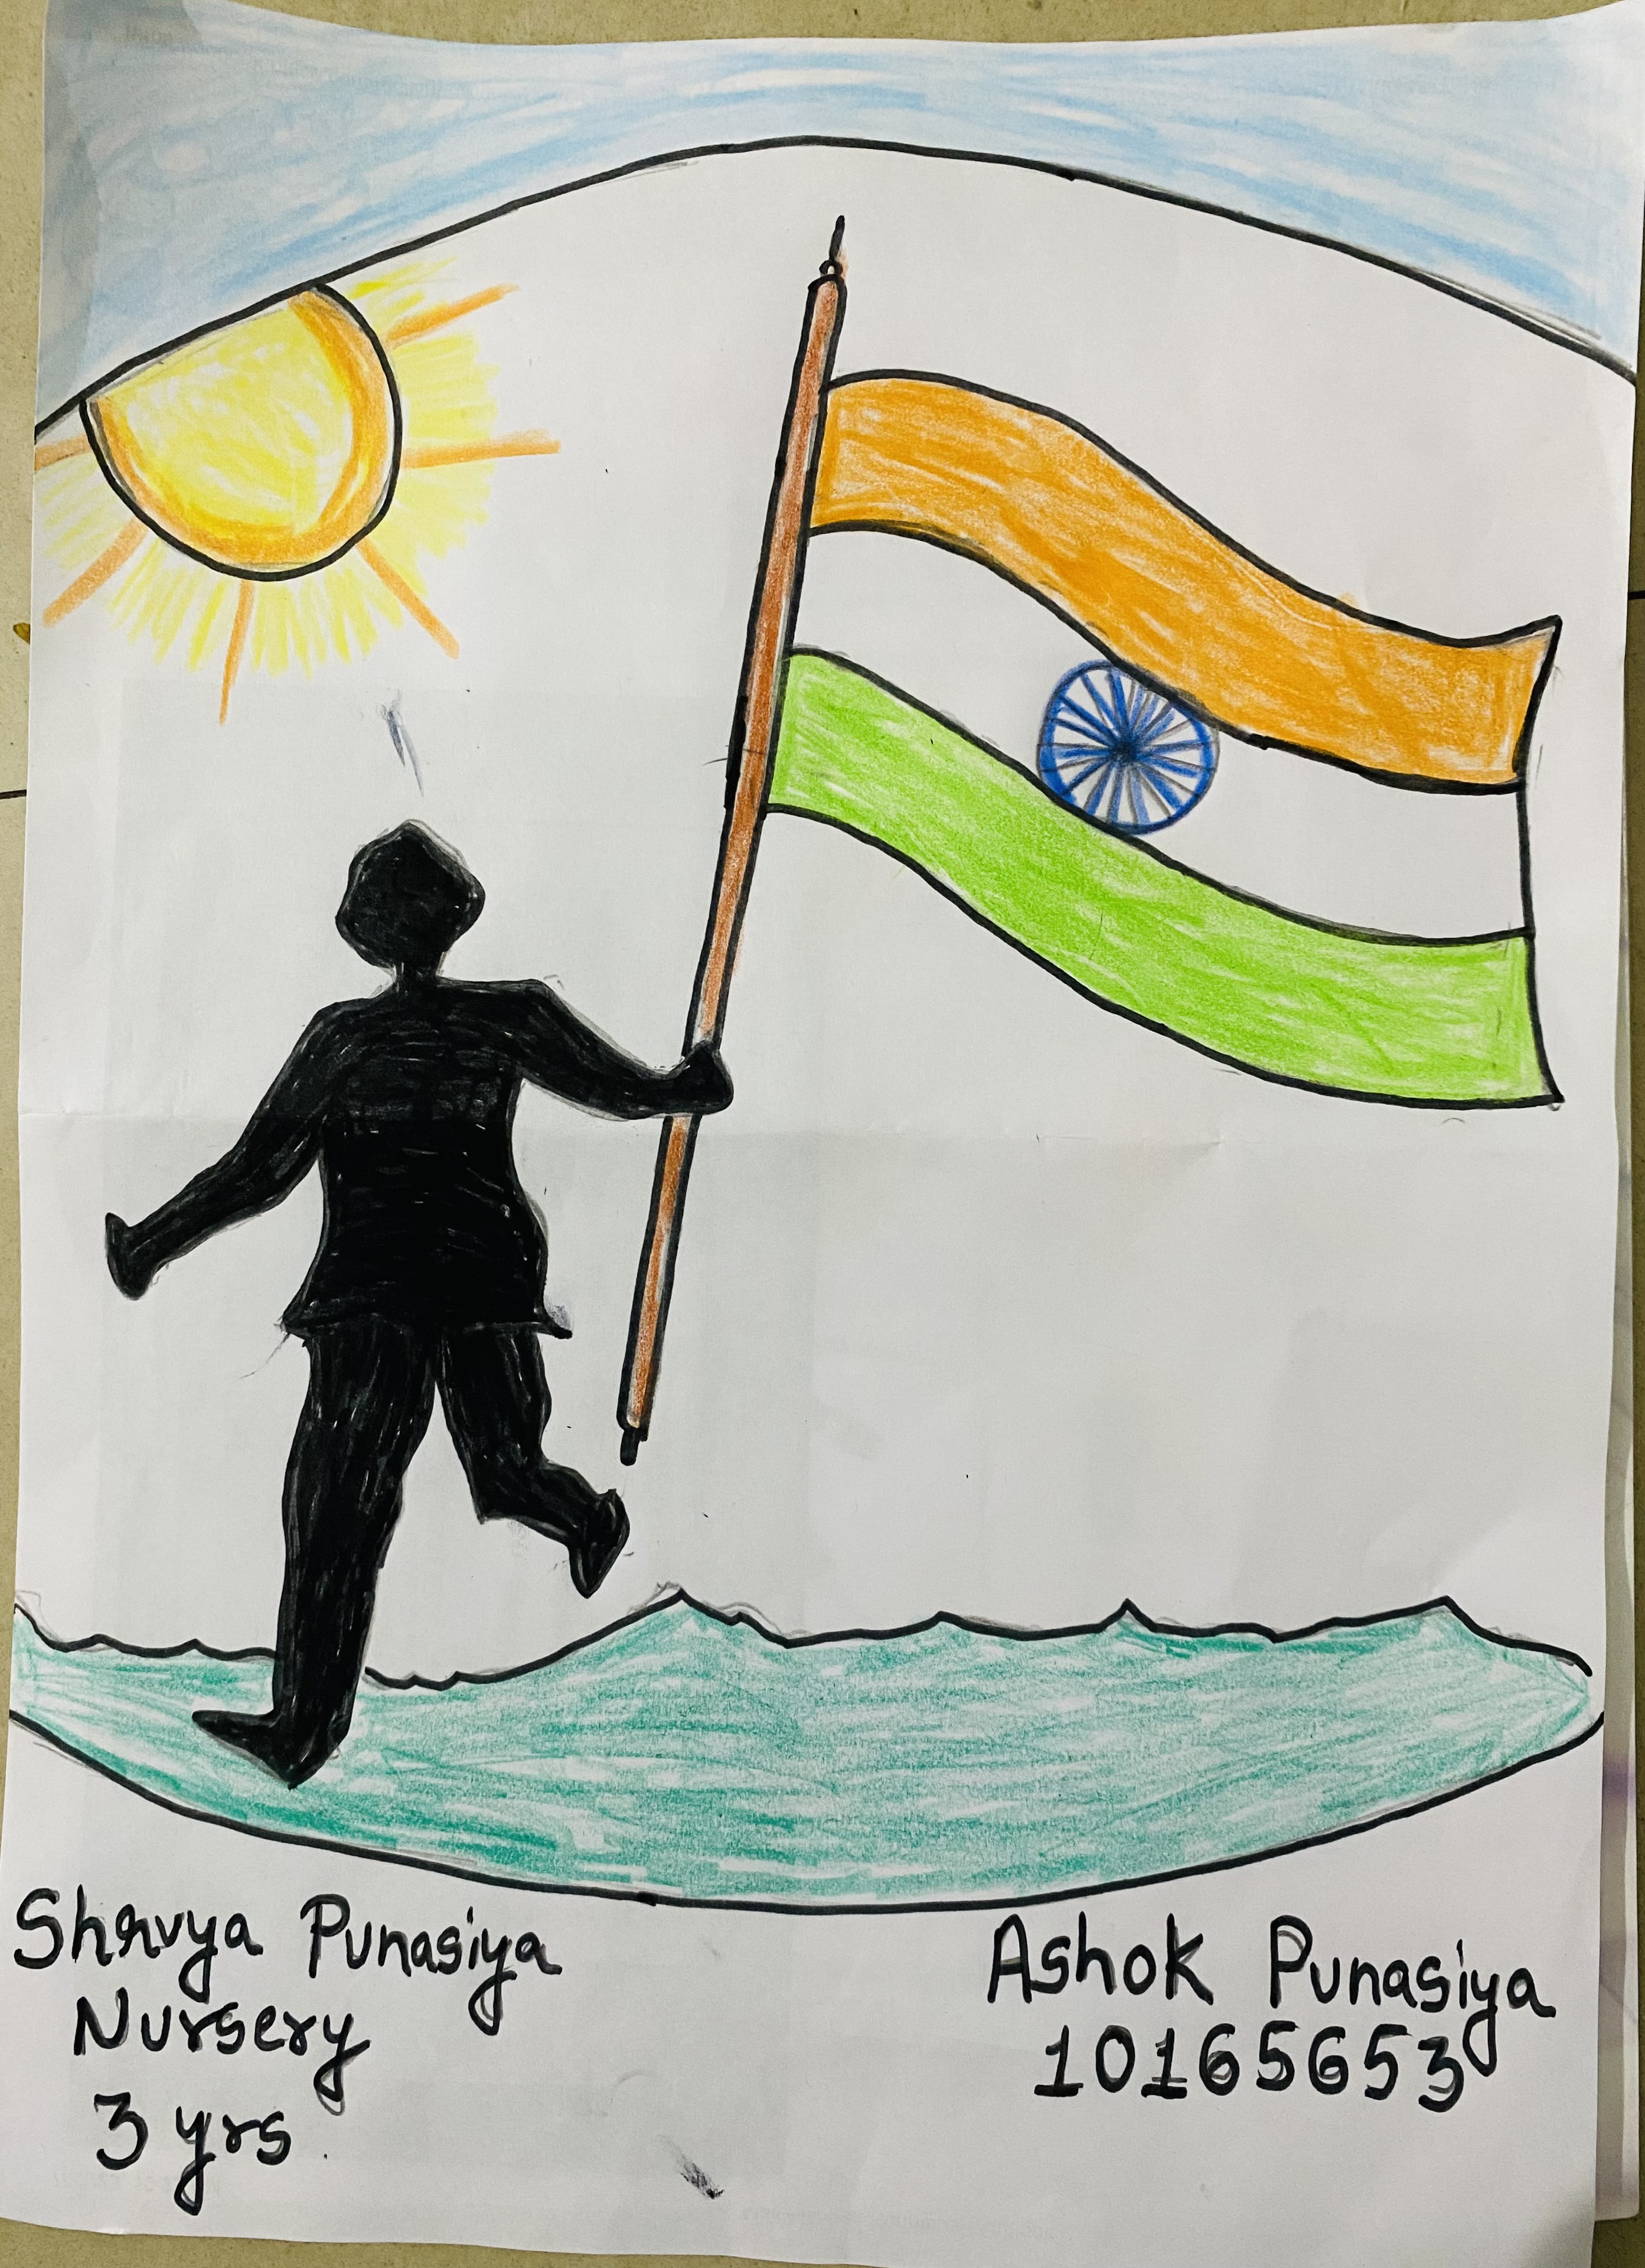 Shavya Punasiya
Nursery
3 yrs.
Ashok Punasiya
10165653